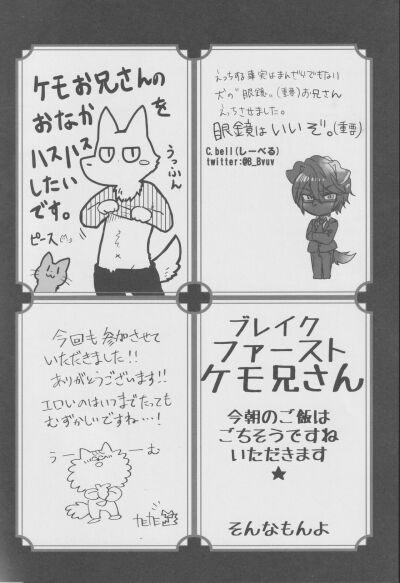 ケモお兄さんの
おなかを
ハスハス
したい
です。
うっふん
ピース
えっちする事実はまんざらでもない
犬の"眼鏡。(重曹)お兄さん
えっちさせました。
眼鏡はいいぞ。(重曹)
C.bell(しーべる)
twitter:@B_Bvuv
今回も参加させて
いただきました!!
ありがとうございます!!
エロいのはいつまでたっても
むずかしいですね…!
うーーーむ
ブレイク
ファースト
ケモ兄さん
今朝のご飯は
ごちそうですね
いただきます
★
そんなもんよ